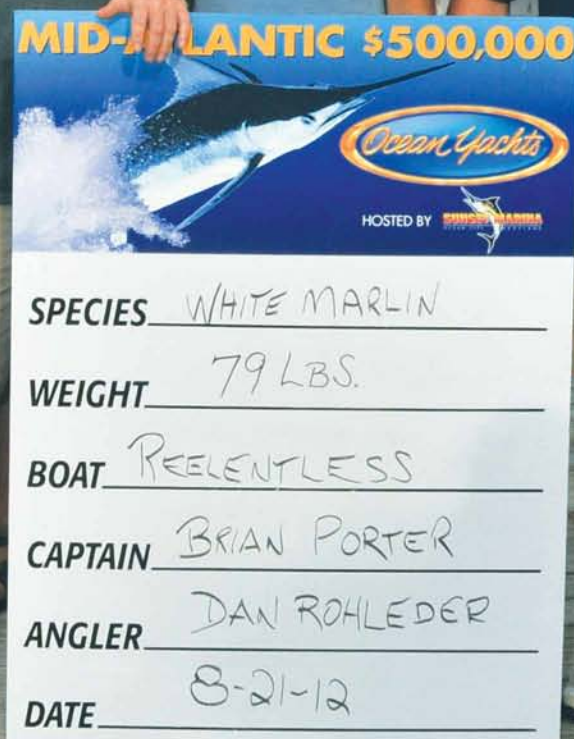 MID-ATLANTIC $500,000
Ocean Yachts
HOSTED BY SUNSET MARINA
OCEAN CITY, MARYLAND
SPECIES WHITE MARLIN
WEIGHT 79 LBS.
BOAT REELENTLESS
CAPTAIN BRIAN PORTER
ANGLER DAN ROHLEDER
DATE 8-21-12